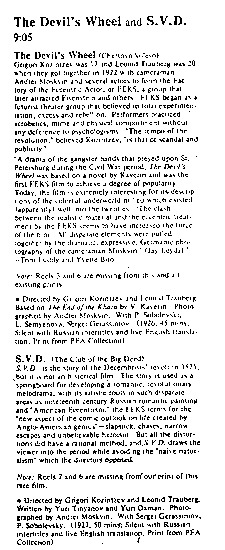 The Devil's Wheel and S.V.D.
9:05
The Devil's Wheel (Chortovo Koleso)
Grigori Kozintsev was 17 and Leonid Trauberg was 20
when they got together in 1922 with cameraman
Andrei Moskvin and several actors to form the Fac-
tory of the Eccentric Actor, or FEKS, a group that
later attracted Eisenstein and others. FEKS began as a
futurist theater group that believed in total experimen-
tation, excess and rebellion. Performers practiced
acrobatics, mime and physical comportment without
any deference to psychologism. "The tempo of the
revolution," believed Kozintsev, "is that of scandal and
publicity."
"A drama of the gangster bands that preyed upon St.
Petersburg during the Civil War period, The Devil's
Wheel was based on a novel by Kaverin and was the
first FEKS film to achieve a degree of popularity.
Today, the film is extremely interesting for its descrip-
tions of the criminal underworld
(apparently) well into the twenties. 'The clash
between the realistic material and the eccentric treat-
ment by the FEKS seems to have increased the force
of the film. All disparate elements were pulled
together by the dramatic, expressive, Germanic pho-
tography of the cameraman Moskvin.' (Jay Leyda)"
—Tom Luddy
Note: Reels 3 and 6 are missing from this and all
existing prints.
• Directed by Grigori Kozintzev and Leonid Trauberg.
Based on The End of the Khaza by V. Kaverin. Photo-
graphed by Andrei Moskvin. With P. Sobolevsky,
L. Semyonova, Sergei Gerassimov. (1926, 45 mins,
Silent with Russian intertitles and live English transla-
tion, Print from PFA Collection)
S.V.D. (The Club of the Big Deed)
S.V.D. is the story of the Decembrists' revolt in 1825,
but it is not an historical film. The story is used as a
springboard for developing a romantic, revolutionary
melodrama, with its artistic roots in such disparate
areas as nineteenth century Russian romantic painting
and "American Eccentrism," the FEKS terms for the
"new aspect of the comic outlook on life created by
Anglo-American genius"—slapstick, chases, narrow
escapes and unbelievable heroism. But all the distor-
tions did have a rational method, and S.V.D. draws the
viewer into the period while avoiding the "naive natur-
alism" which the directors opposed.
Note: Reels 2 and 6 are missing from our print of this
rare film.
• Directed by Grigori Kozintzev and Leonid Trauberg.
Written by Yuri Tinyanov and Yuri Oxman. Photo-
graphed by Andrei Moskvin. With Sergei Gerassimov,
P. Sobolevsky. (1927, 50 mins, Silent with Russian
intertitles and live English translation, Print from PFA
Collection)